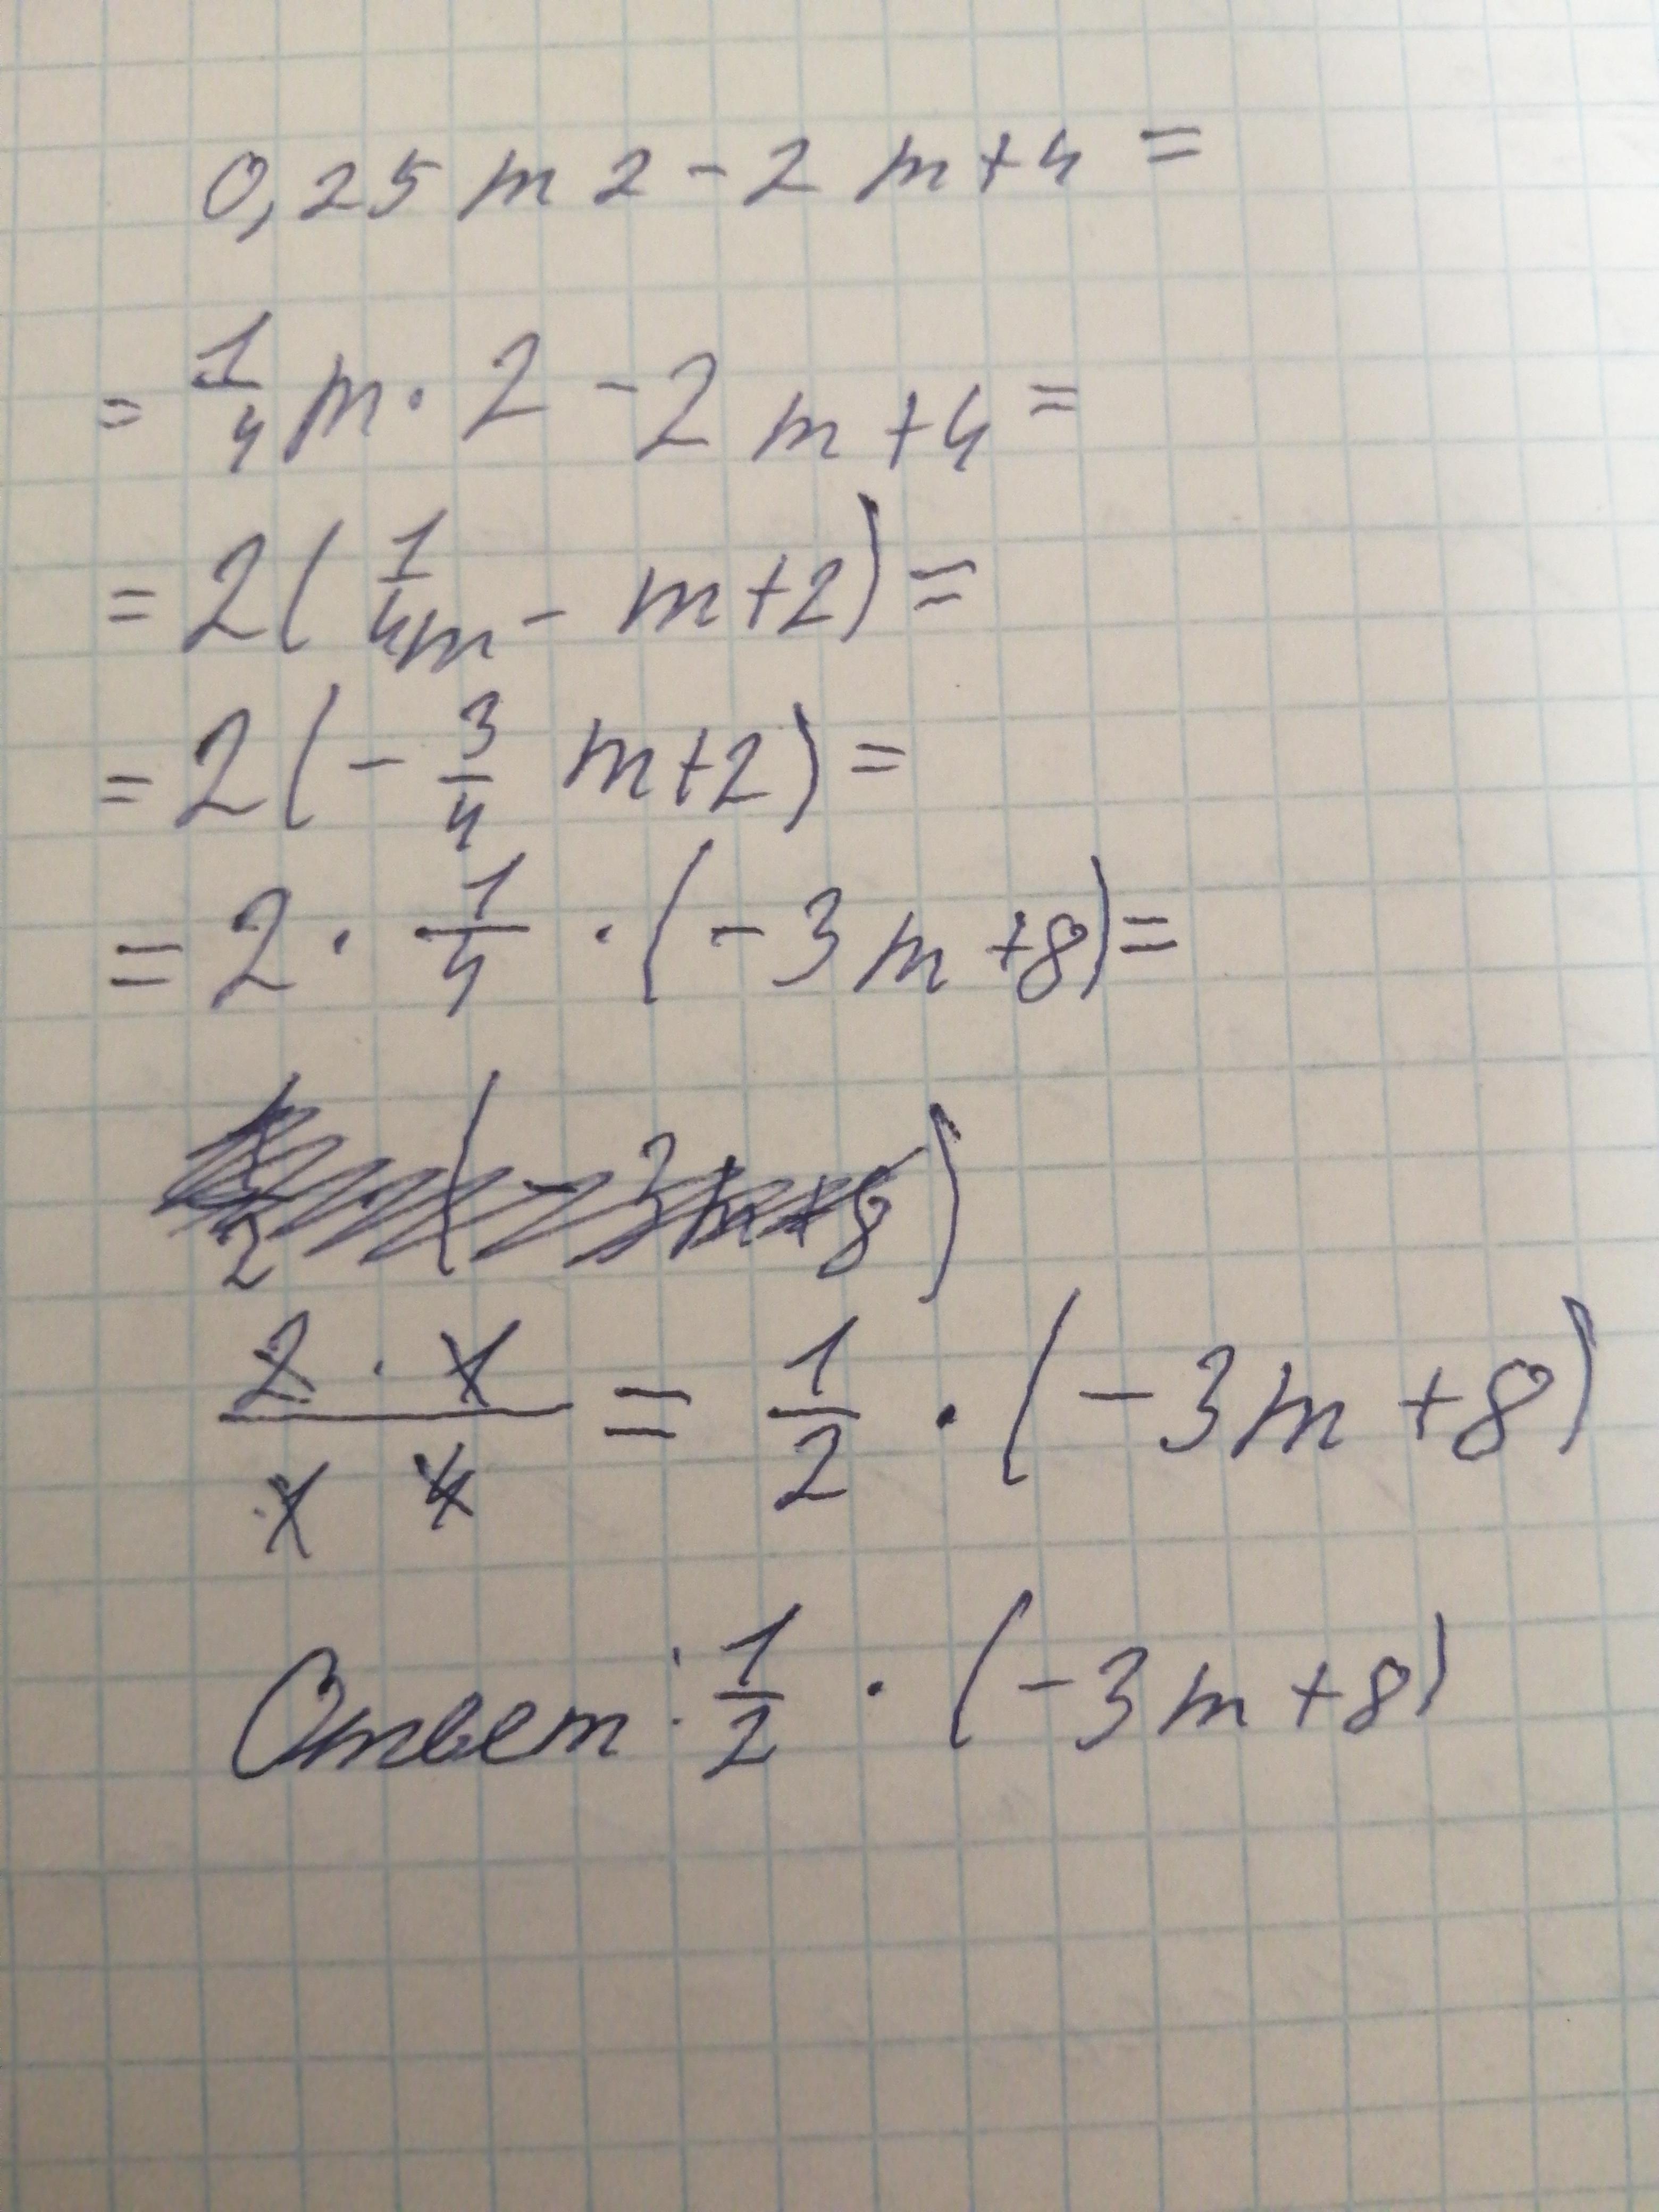 0,25 m 2 - 2 m + 4 =
= 1/4 m · 2 - 2 m + 4 =
= 2 ( 1/4m - m + 2 ) =
= 2 ( - 3/4 m + 2 ) =
= 2 · 1/4 · ( - 3 m + 8 ) =
1/2 · ( - 3 m + 8 )
2 · 1 / 1 4 = 1/2 · ( - 3 m + 8 )
Ответ: 1/2 · ( - 3 m + 8 )